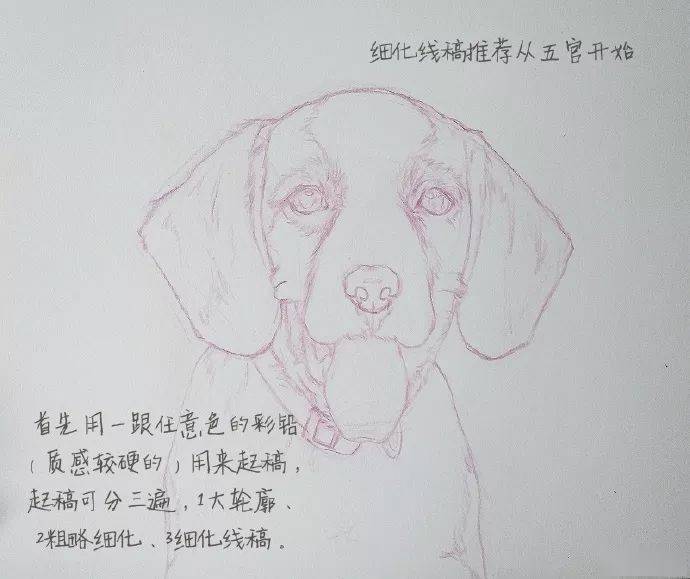 细化线稿推荐从五官开始
首先用一跟任意色的彩铅
（质感较硬的）用来起稿，
起稿可分三遍，1大轮廓、
2粗略细化、3细化线稿。